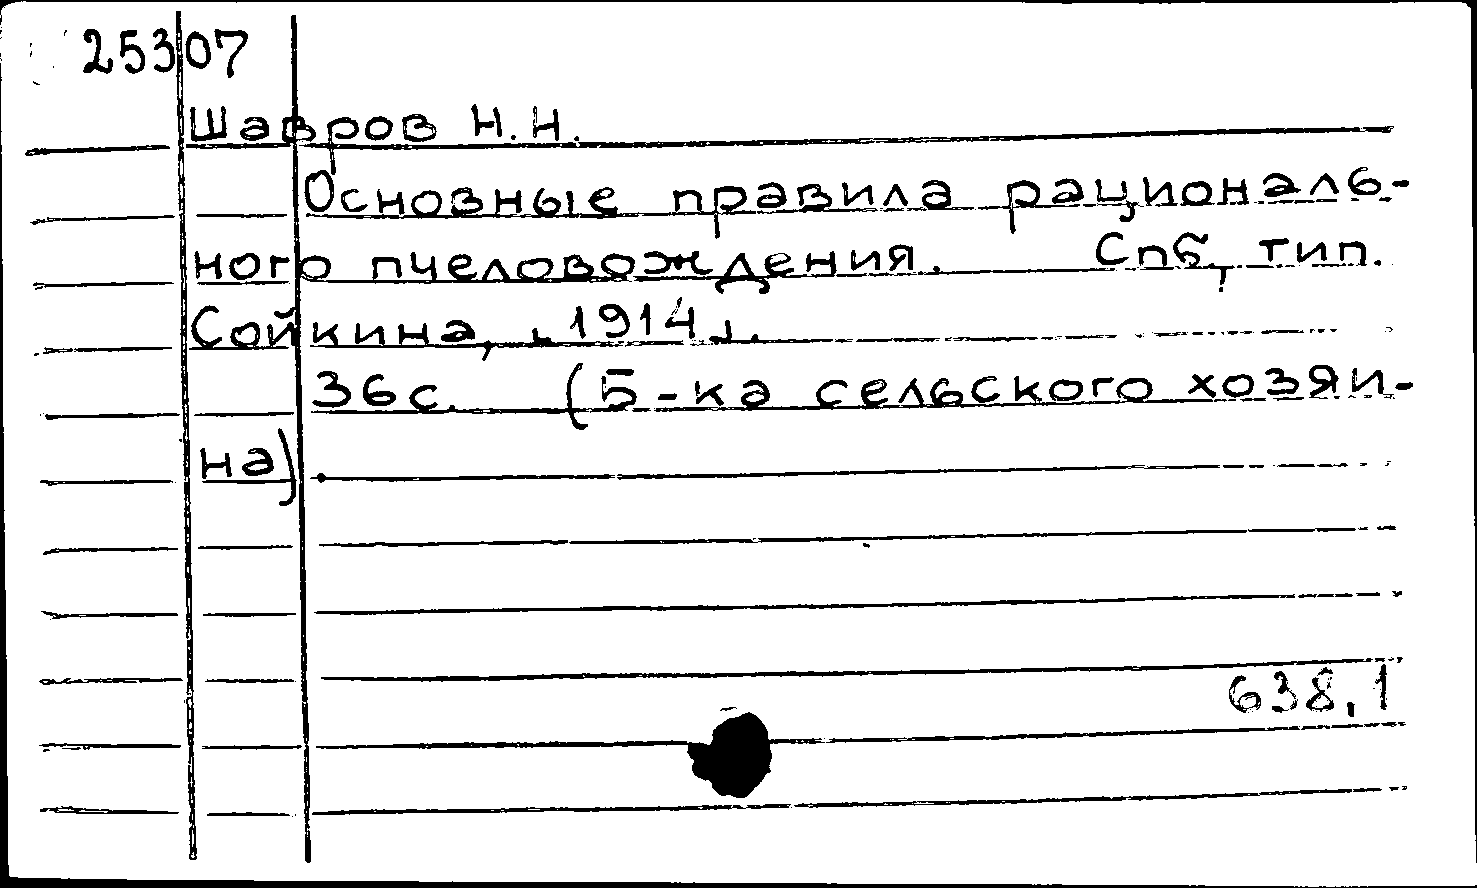 25307
Шавров Н.Н.
Основные правила рациональ-
ного пчеловождения. Спб., тип.
Сойкина, [1914].
36с. (Б-ка сельского хозяи-
на).
638.1